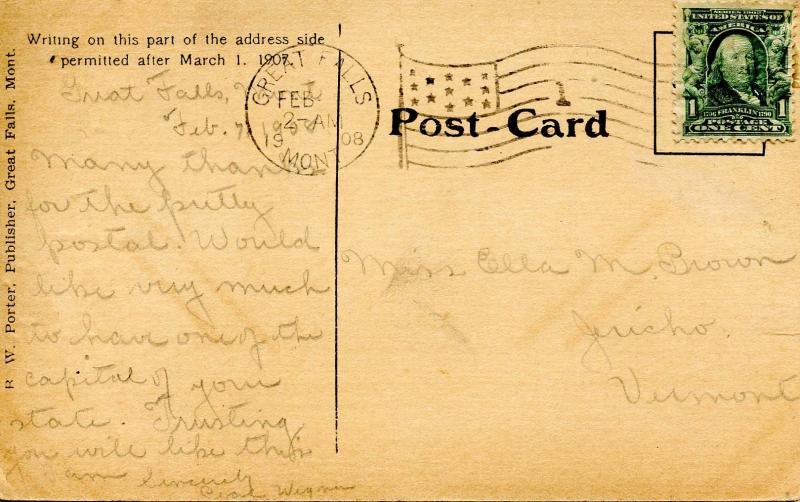 Writing on this part of the address side
permitted after March 1. 1907.
R W. Porter, Publisher, Great Falls, Mont.
Great Falls,
Feb. 7, 1908
Many thanks
for the pretty
postal. Would
like very much
to have one of the
capital of your
state. Trusting
you will like this
am Sincerely
Post-Card
GREAT FALLS
FEB
2-AM
19 08
MONT
1
SERIES 1902
UNITED STATES OF AMERICA
1706 FRANKLIN 1790
1 POSTAGE 1
ONE CENT
Miss Ella M. Brown
Jericho.
Vermont